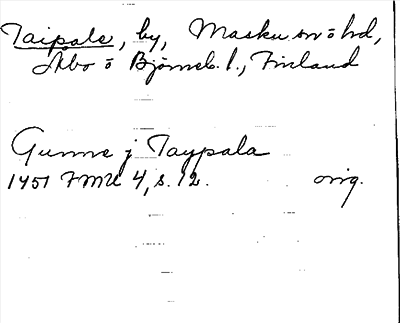 Taipale, by, Masku sn o hd,
Åbo o Björneb. l., Finland
Gunne j Taypala
1451 FMU 4, s. 12. orig.